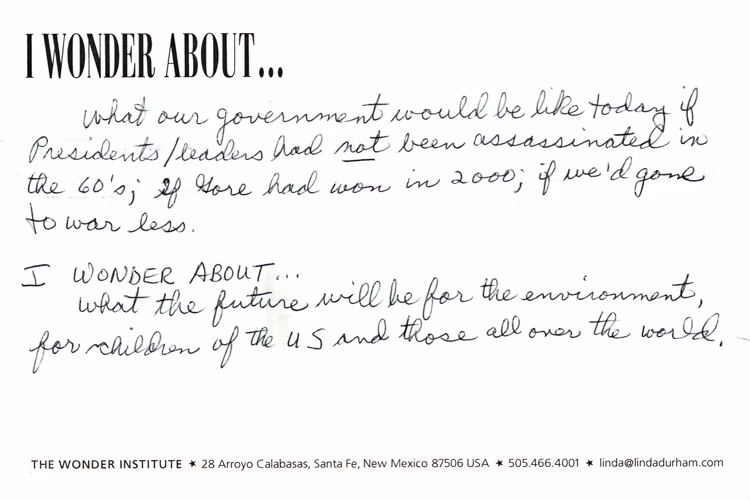 I WONDER ABOUT...
what our government would be like today if
Presidents/leaders had not been assassinated in
the 60's; if Gore had won in 2000; if we'd gone
to war less.
I WONDER ABOUT...
what the future will be for the environment,
for children of the US and those all over the world.
THE WONDER INSTITUTE ★ 28 Arroyo Calabasas, Santa Fe, New Mexico 87506 USA ★ 505.466.4001 ★ linda@lindadurham.com